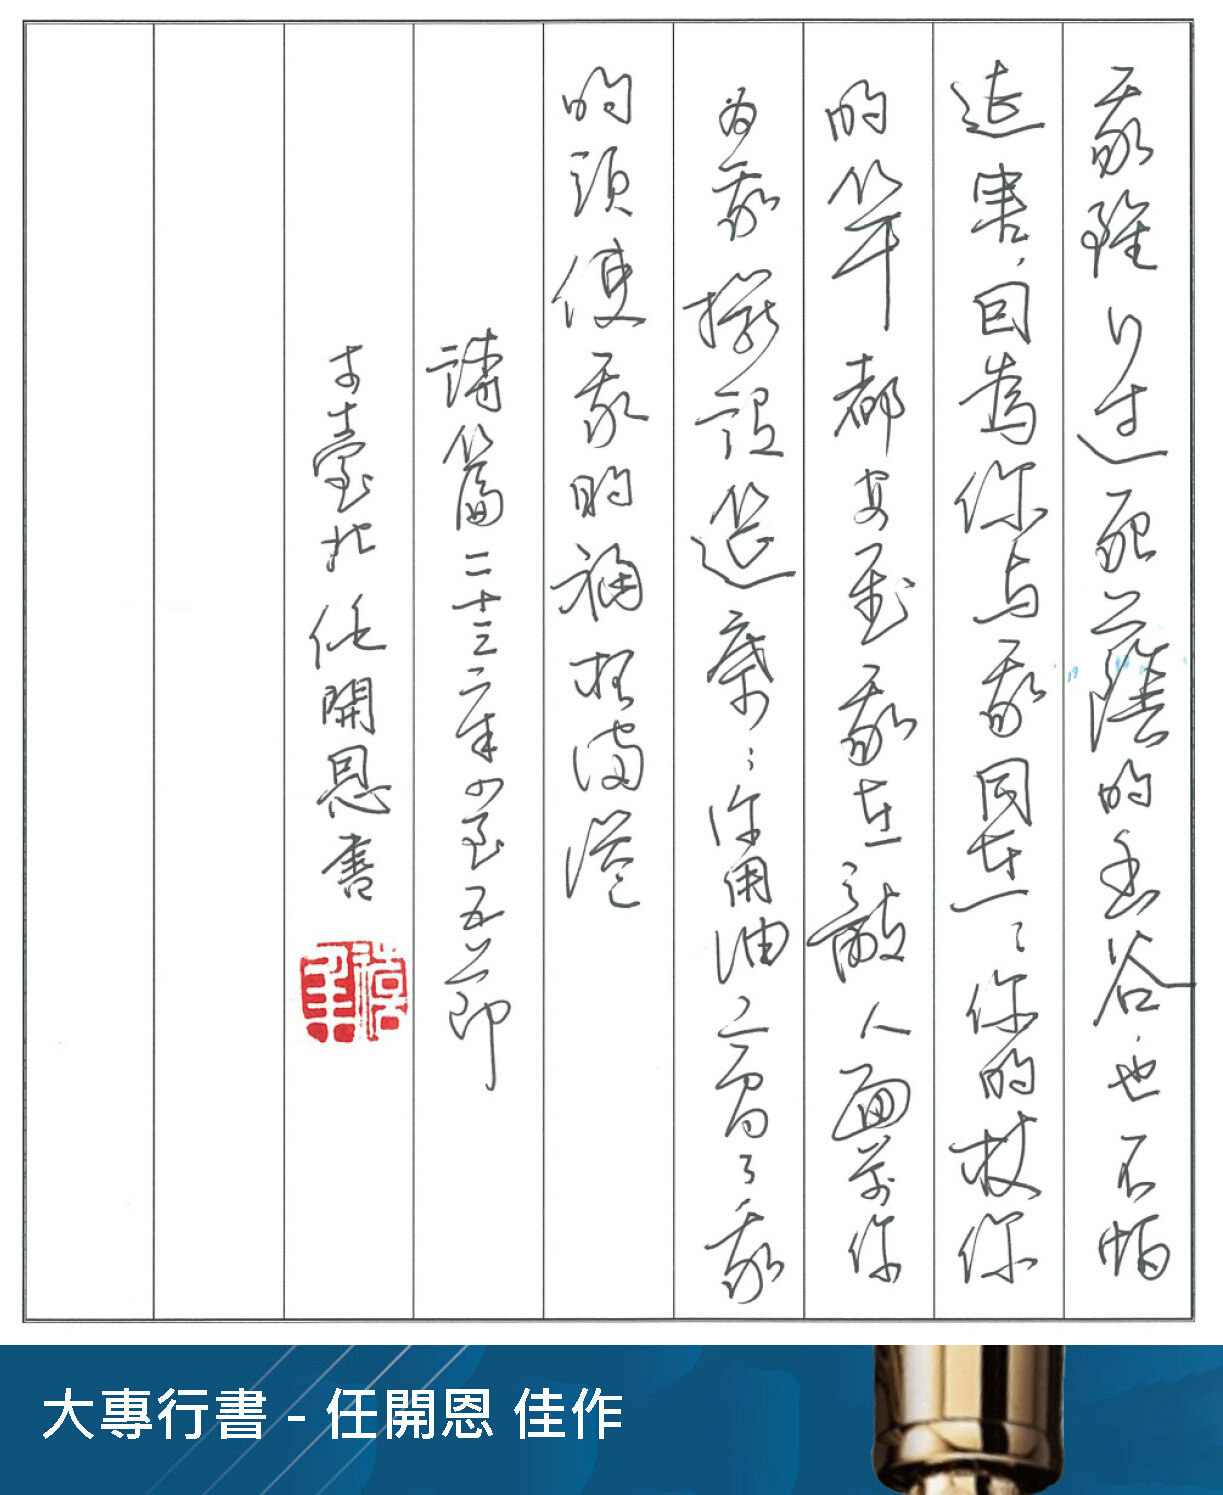 我雖行過死蔭的幽谷，也不怕
遭害，因為你与我同在；你的杖你
的竿都安慰我在敵人面前你
為我擺設筵席；你用油膏了我
的頭使我的福杯滿溢
詩篇二十三章四至五節
于臺北任開恩書
大專行書 - 任開恩 佳作